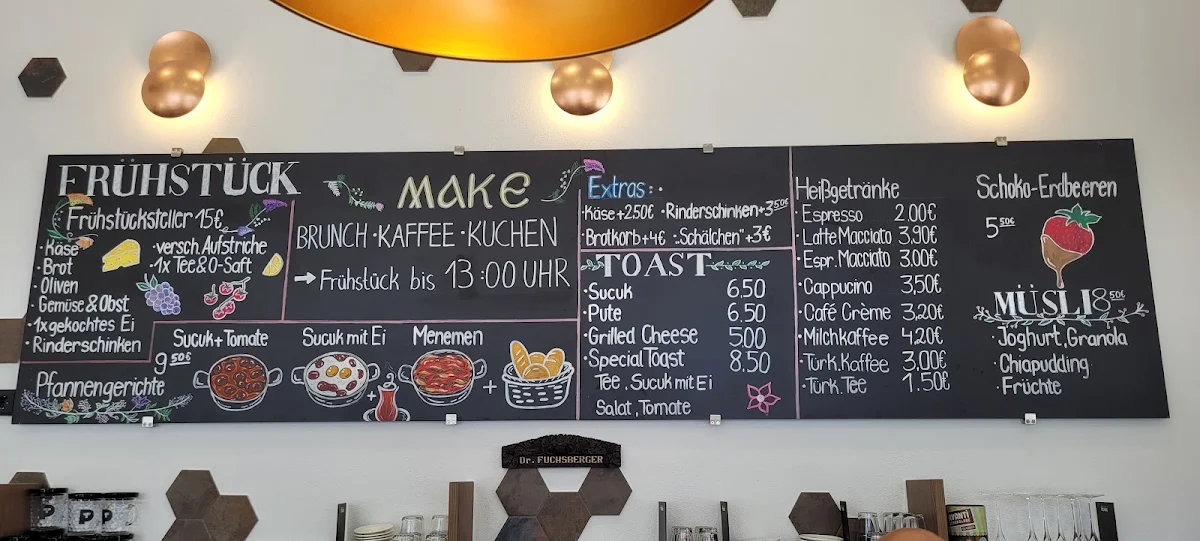 FRÜHSTÜCK
Frühstücksteller 15€
· Käse
· Brot
· Oliven
· Gemüse & Obst
· 1x gekochtes Ei
· Rinderschinken
· versch. Aufstriche
· 1x Tee & O-Saft
MAKE
BRUNCH · KAFFEE · KUCHEN
→ Frühstück bis 13:00 UHR
Pfannengerichte
9 50€
Sucuk + Tomate
Sucuk mit Ei
Menemen
+
+
Extras:
· Käse + 2.50€ · Rinderschinken + 3 50€
· Brotkorb + 4€ · "Schälchen" + 3€
TOAST
· Sucuk 6.50
· Pute 6.50
· Grilled Cheese 5.00
· Special Toast 8.50
Tee, Sucuk mit Ei
Salat, Tomate
Heißgetränke
· Espresso 2.00€
· Latte Macciato 3.90€
· Espr. Macciato 3.00€
· Cappucino 3.50€
· Café Crème 3,20€
· Milchkaffee 4.20€
· Türk. Kaffee 3.00€
· Türk. Tee 1.50€
Schoko-Erdbeeren
5 50€
MÜSLI 8 50€
· Joghurt, Granola
· Chiapudding
· Früchte
Dr. FUCHSBERGER
P
P